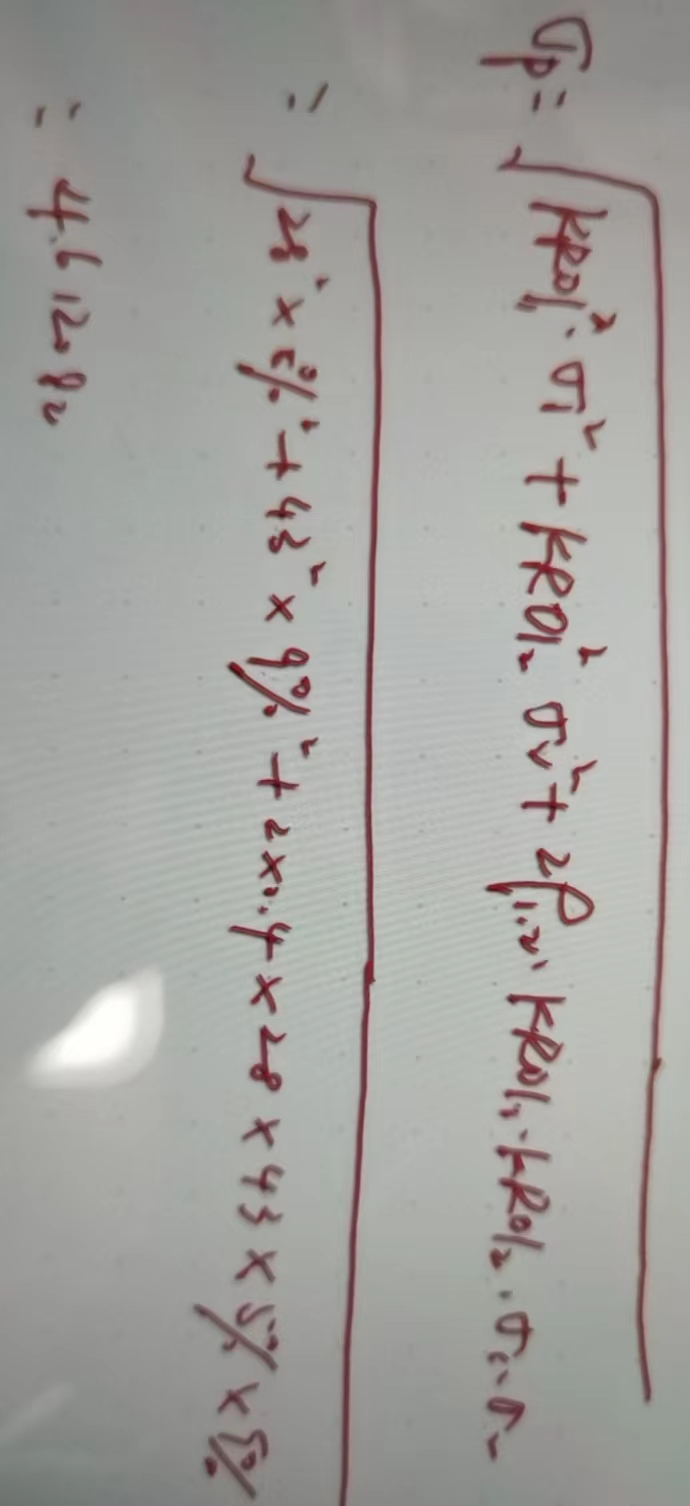 σp = √(KR01₁² · σ₁² + KR01₂² σ₂² + 2ρ₁.₂ · KR01₁ · KR01₂ · σ₁ · σ₂)
= √(28² × 5%² + 43² × 9%² + 2×0.4 × 28 × 43 × 5% × 5%)
= 4.612082